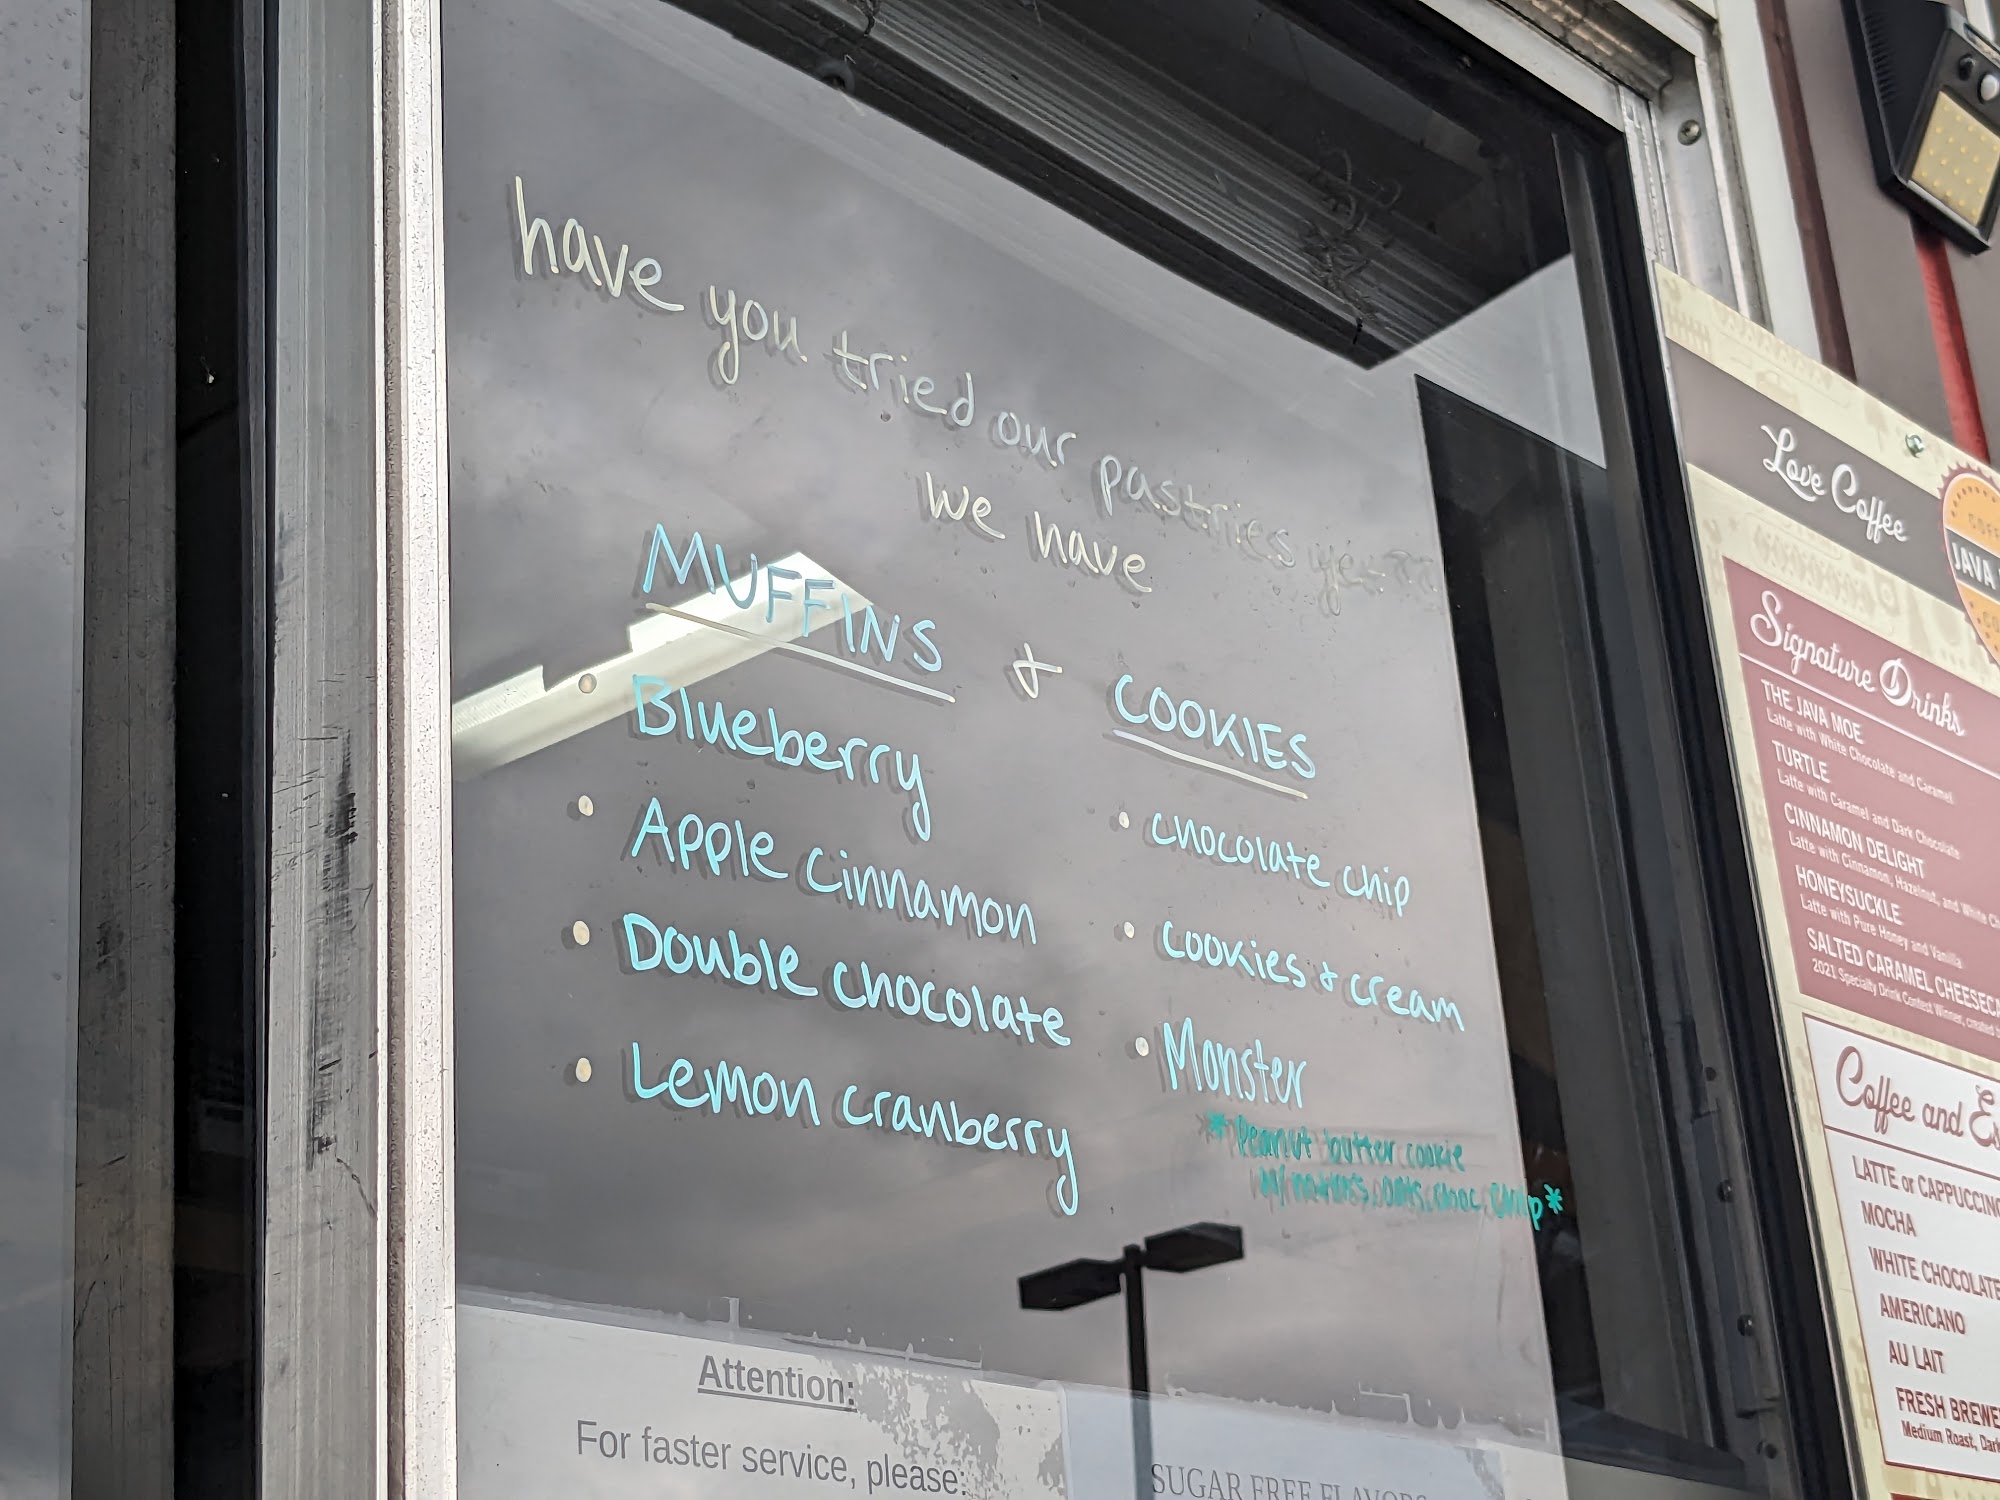 have you tried our pastries yet??
we have
MUFFINS & COOKIES
• Blueberry
• Apple cinnamon
• Double chocolate
• Lemon cranberry
• chocolate chip
• cookies & cream
• Monster
* Peanut butter cookie
w/ oats, choc. chip *
Attention:
For faster service, please:
SUGAR FREE FLAVORS
Love Coffee
JAVA
Signature Drinks
THE JAVA MOE
Latte with White Chocolate and Caramel
TURTLE
Latte with Caramel and Dark Chocolate
CINNAMON DELIGHT
Latte with Cinnamon, Hazelnut, and White
HONEYSUCKLE
Latte with Pure Honey and Vanilla
SALTED CARAMEL
2021 Specialty Drink Contest Winner, created
Coffee and
LATTE or CAPPUCCINO
MOCHA
WHITE CHOCOLATE
AMERICANO
AU LAIT
FRESH
Medium Roast,